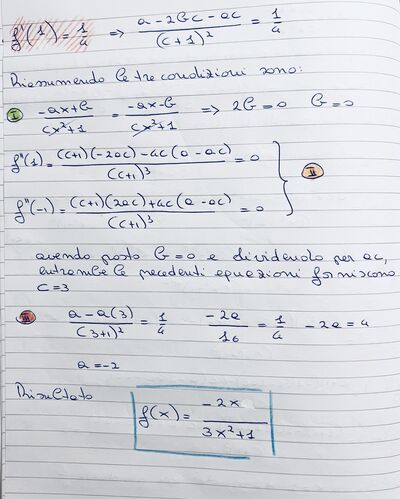 f'(1) = 1/4 => (a - 2bc - ac)/(c+1)² = 1/4
Riassumendo le tre condizioni sono:
I (-ax+b)/(cx²+1) = (-ax-b)/(cx²+1) => 2b=0 b=0
f''(1) = ((c+1)(-2ac) - 4c(a-ac))/(c+1)³ = 0
II
f''(-1) = ((c+1)(2ac) + 4c(a-ac))/(c+1)³ = 0
avendo posto b=0 e dividendolo per ac,
entrambe le precedenti equazioni forniscono
c=3
III (a - a(3))/(3+1)² = 1/4 -2a/16 = 1/4 -2a=4
a=-2
Risultato f(x) = -2x/(3x²+1)